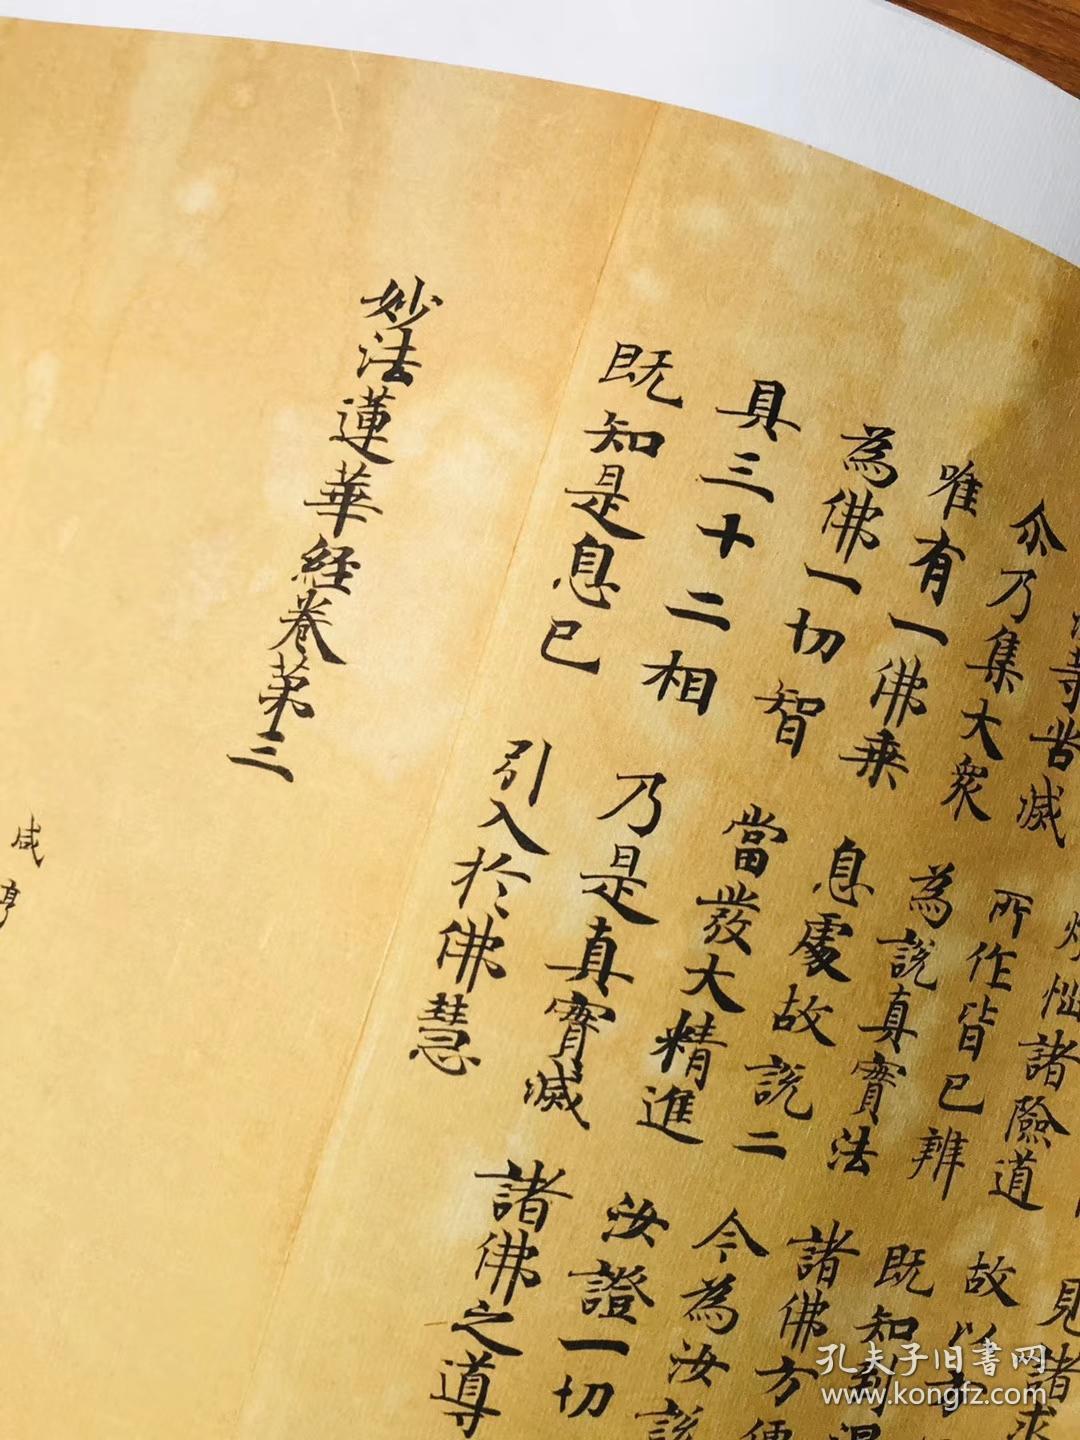 見諸求
惱諸險道 故以方
等苦滅 所作皆已辨 既知到涅
尒乃集大衆 為說真實法 諸佛方便
唯有一佛乘 息處故說二 今為汝說
為佛一切智 當發大精進 汝證一切
具三十二相 乃是真實滅 諸佛之導
既知是息已 引入於佛慧
妙法蓮華經卷第三
咸亨
孔夫子旧书网
www.kongfz.com